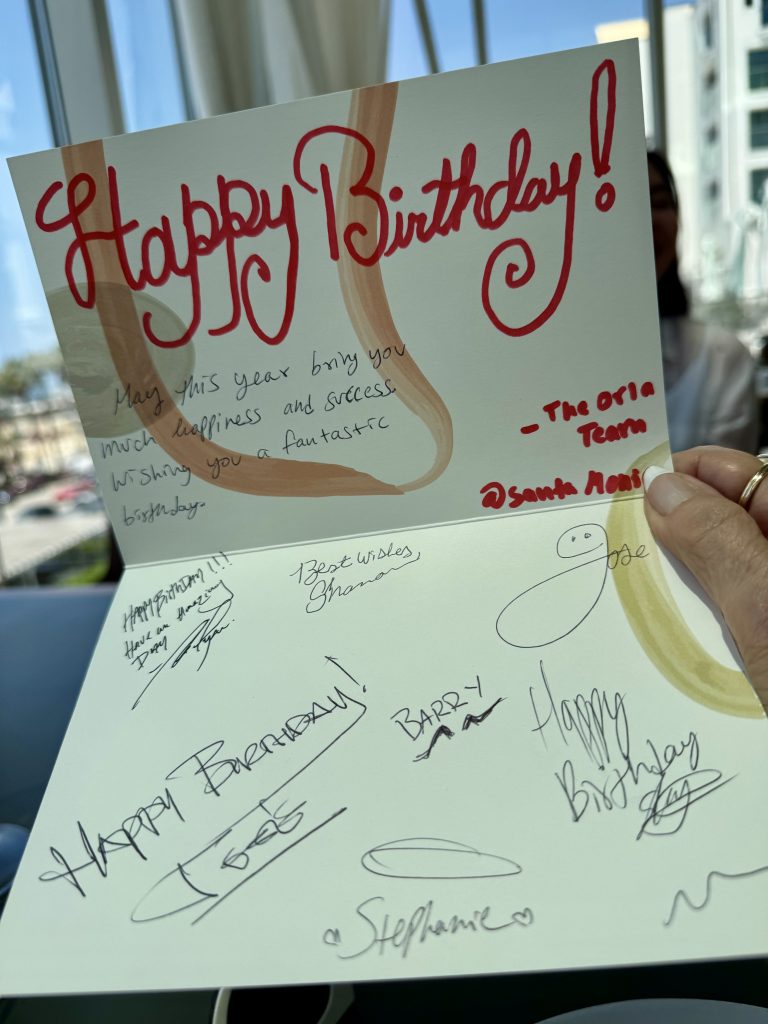 Happy Birthday!
May this year bring you
much happiness and success
Wishing you a fantastic
birthday.
- The Orla
Team
@Santa Moni
HAPPY BIRTHDAY!!!
Have an Amazing
Day
Best Wishes
Shanon
Jose
HAPPY BIRTHDAY!
BARRY
Happy
Birthday
Stephanie